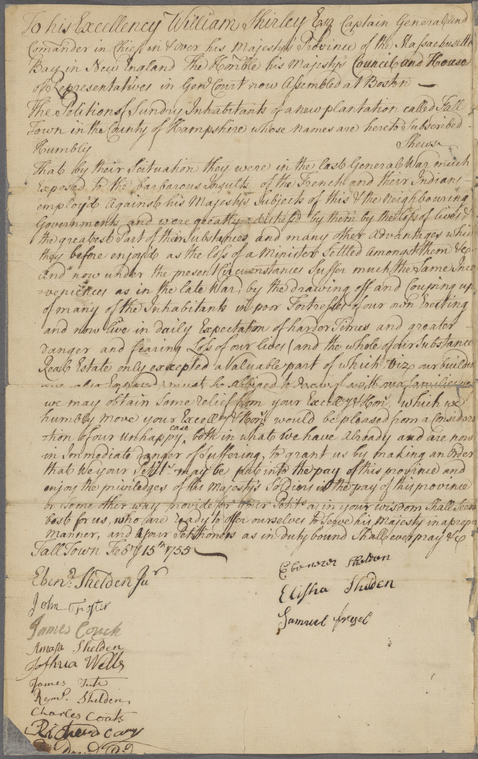 To his Excellency William Shirley Esq Captain General and
Comander in Chief in & over his Majestys Province of the Massachusetts
Bay in New England The Honble his Majestys Council and House
of Representatives in Genl Court now Assembled at Boston
The Petition of Sundry Inhabitants of a new plantation called Fall
Town in the County of Hampshire whose names are hereto Subscribed
Humbly Shews
That by their Scituation they were in the last General War much
Exposed to the barbarous Insults of the French and their Indians
employd Against his Majestys Subjects of this & the Neighbouring
Governments and were greatly by them by the loss of Lives &
the greatest Part of their Substances and many other Advantages which
they before enjoyd as the loss of a Minister Settled amongst them &c
And now under the present Circumstances Suffer much the Same
as in the late War, by the drawing off and Couping up
of many of the Inhabitants in poor Fortresses of our own Erecting
and now live in daily Expectation of harder Times and greater
danger and fearing Loss of our lives (and the whole of our Substance
Real Estates only excepted a Valuable part of which Viz our buildings
must be obliged to draw of with our families
we may obtain Some relief from your Excelly & Honrs which we
humbly move your Excelly & Honrs would be pleased from a Considera
tion of our unhappy case both in what we have Already and are now
in Immediate danger of Suffering, to grant us by making an Order
that we your Petitrs may be put into the pay of this province and
enjoy the priviledges of his Majestys Soldiers in the pay of this province
or Some other way provide for your Petitrs as in your wisdom Shall Seem
best for us, who are ready to offer ourselves to Serve his Majesty in a proper
manner, and your Petitioners as in Duty bound Shall ever pray &c
Fall Town Feby 15th 1755
Ebenr Shelden Jur
John Foster
James Couch
Amasa Shelden
Joshua Wells
James Tute
Remr. Shelden
Charles Coats
Ebenezer Sheldon
Elisha Shelden
Samuel